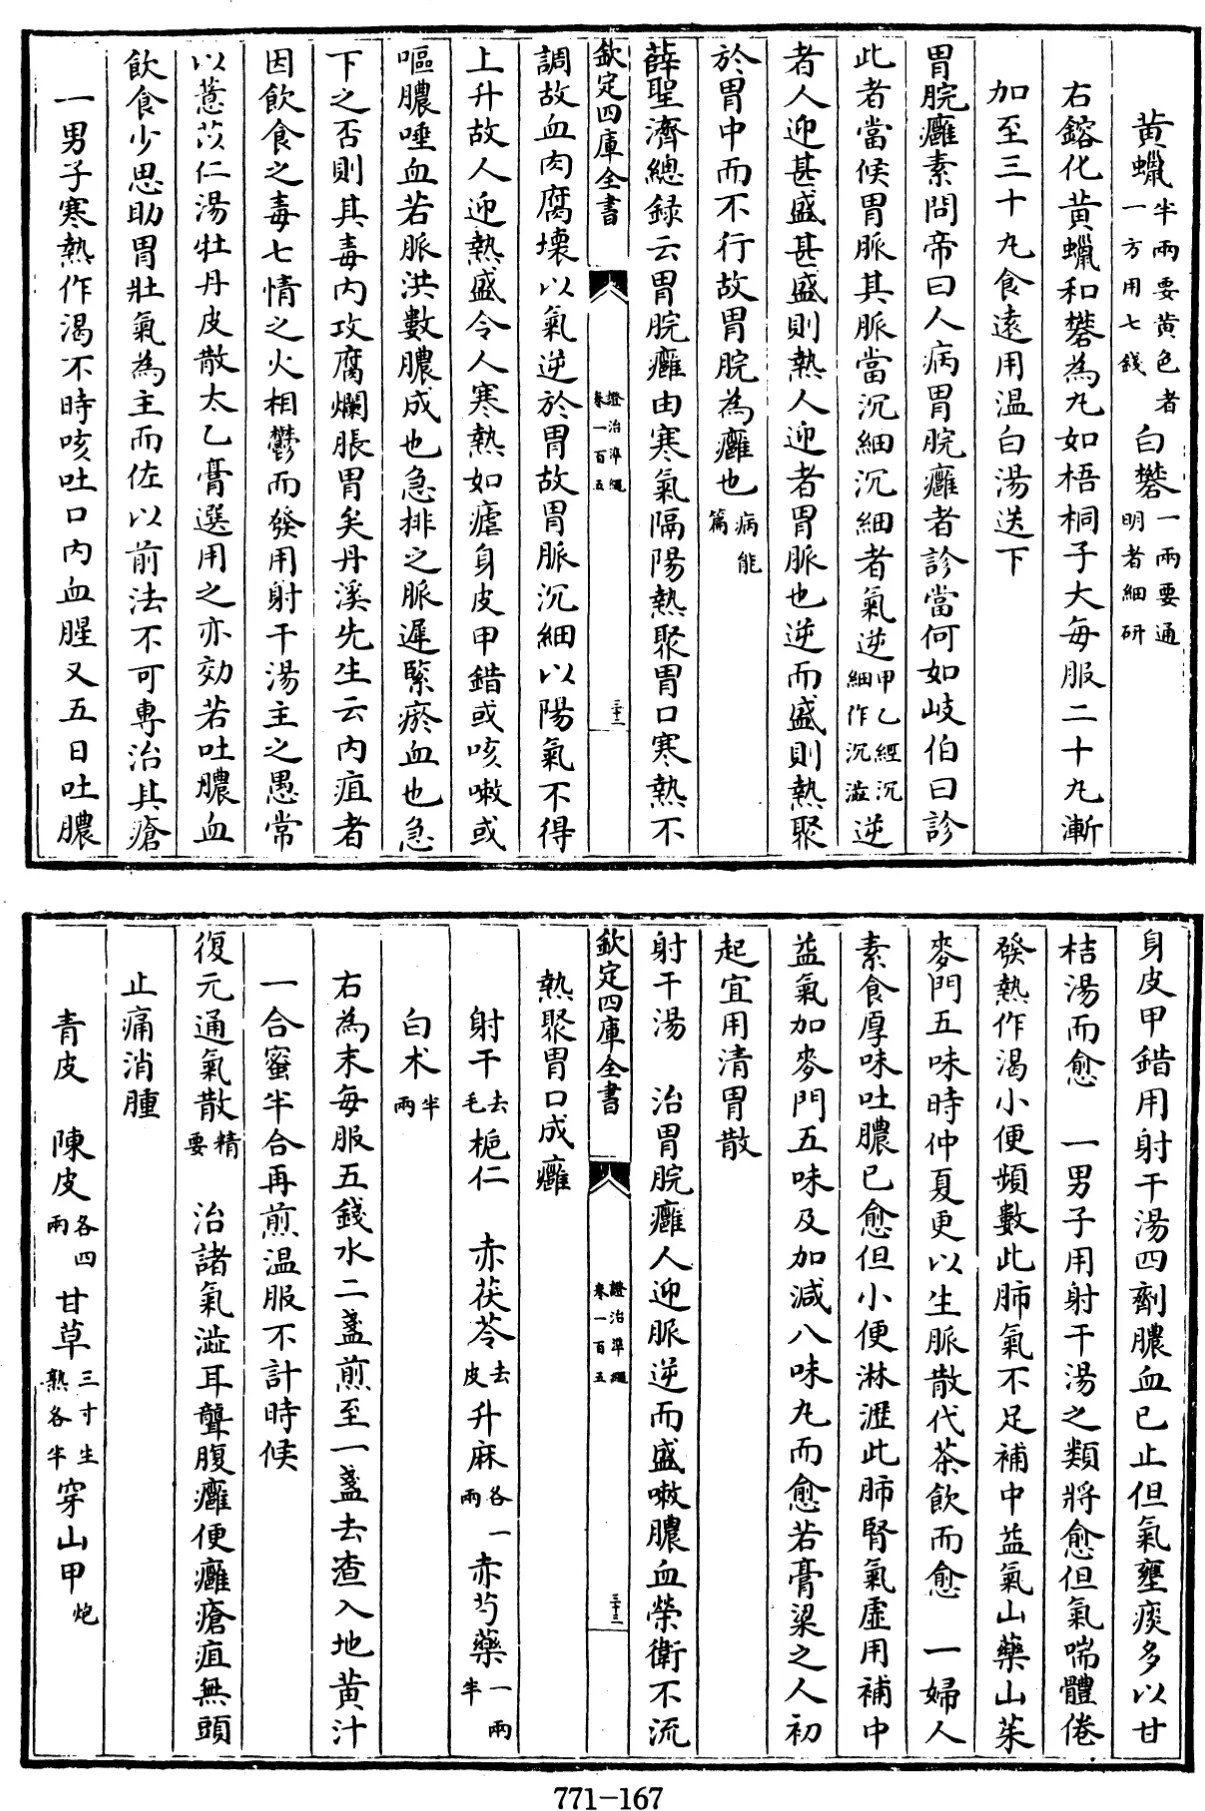 黄蠟半兩要黄色者一方用七錢白礬一兩要通明者細研
右鎔化黄蠟和礬為丸如梧桐子大每服二十丸漸
加至三十丸食遠用温白湯送下
胃脘癰素問帝曰人病胃脘癰者診當何如岐伯曰診
此者當候胃脈其脈當沉細沉細者氣逆甲乙經沉細作沉澁逆
者人迎甚盛甚盛則熱人迎者胃脈也逆而盛則熱聚
於胃中而不行故胃脘為癰也病能篇
薛聖濟總録云胃脘癰由寒氣隔陽熱聚胃口寒熱不
欽定四庫全書
證治準繩
卷一百五
三十二
調故血肉腐壊以氣逆於胃故胃脈沉細以陽氣不得
上升故人迎熱盛令人寒熱如瘧身皮甲錯或咳嗽或
嘔膿唾血若脈洪數膿成也急排之脈遲緊瘀血也急
下之否則其毒内攻腐爛腸胃矣丹溪先生云内疽者
因飲食之毒七情之火相鬱而發用射干湯主之愚常
以薏苡仁湯牡丹皮散太乙膏選用之亦効若吐膿血
飲食少思助胃壯氣為主而佐以前法不可專治其瘡
一男子寒熱作渴不時咳吐口内血腥又五日吐膿
身皮甲錯用射干湯四劑膿血已止但氣壅痰多以甘
桔湯而愈　一男子用射干湯之類將愈但氣喘體倦
發熱作渴小便頻數此肺氣不足補中益氣山藥山茱
麥門五味時仲夏更以生脈散代茶飲而愈　一婦人
素食厚味吐膿已愈但小便淋瀝此肺腎氣虛用補中
益氣加麥門五味及加減八味丸而愈若膏粱之人初
起宜用清胃散
射干湯　治胃脘癰人迎脈逆而盛嗽膿血榮衛不流
欽定四庫全書
證治準繩
卷一百五
三十三
熱聚胃口成癰
射干去毛　梔仁　赤茯苓去皮　升麻各一兩　赤芍藥一兩半
白术半兩
右為末每服五錢水二盞煎至一盞去渣入地黄汁
一合蜜半合再煎温服不計時候
復元通氣散精要　治諸氣澁耳聾腹癰便癰瘡疽無頭
止痛消腫
青皮　陳皮各四兩　甘草三寸生熟各半　穿山甲炮
771-167